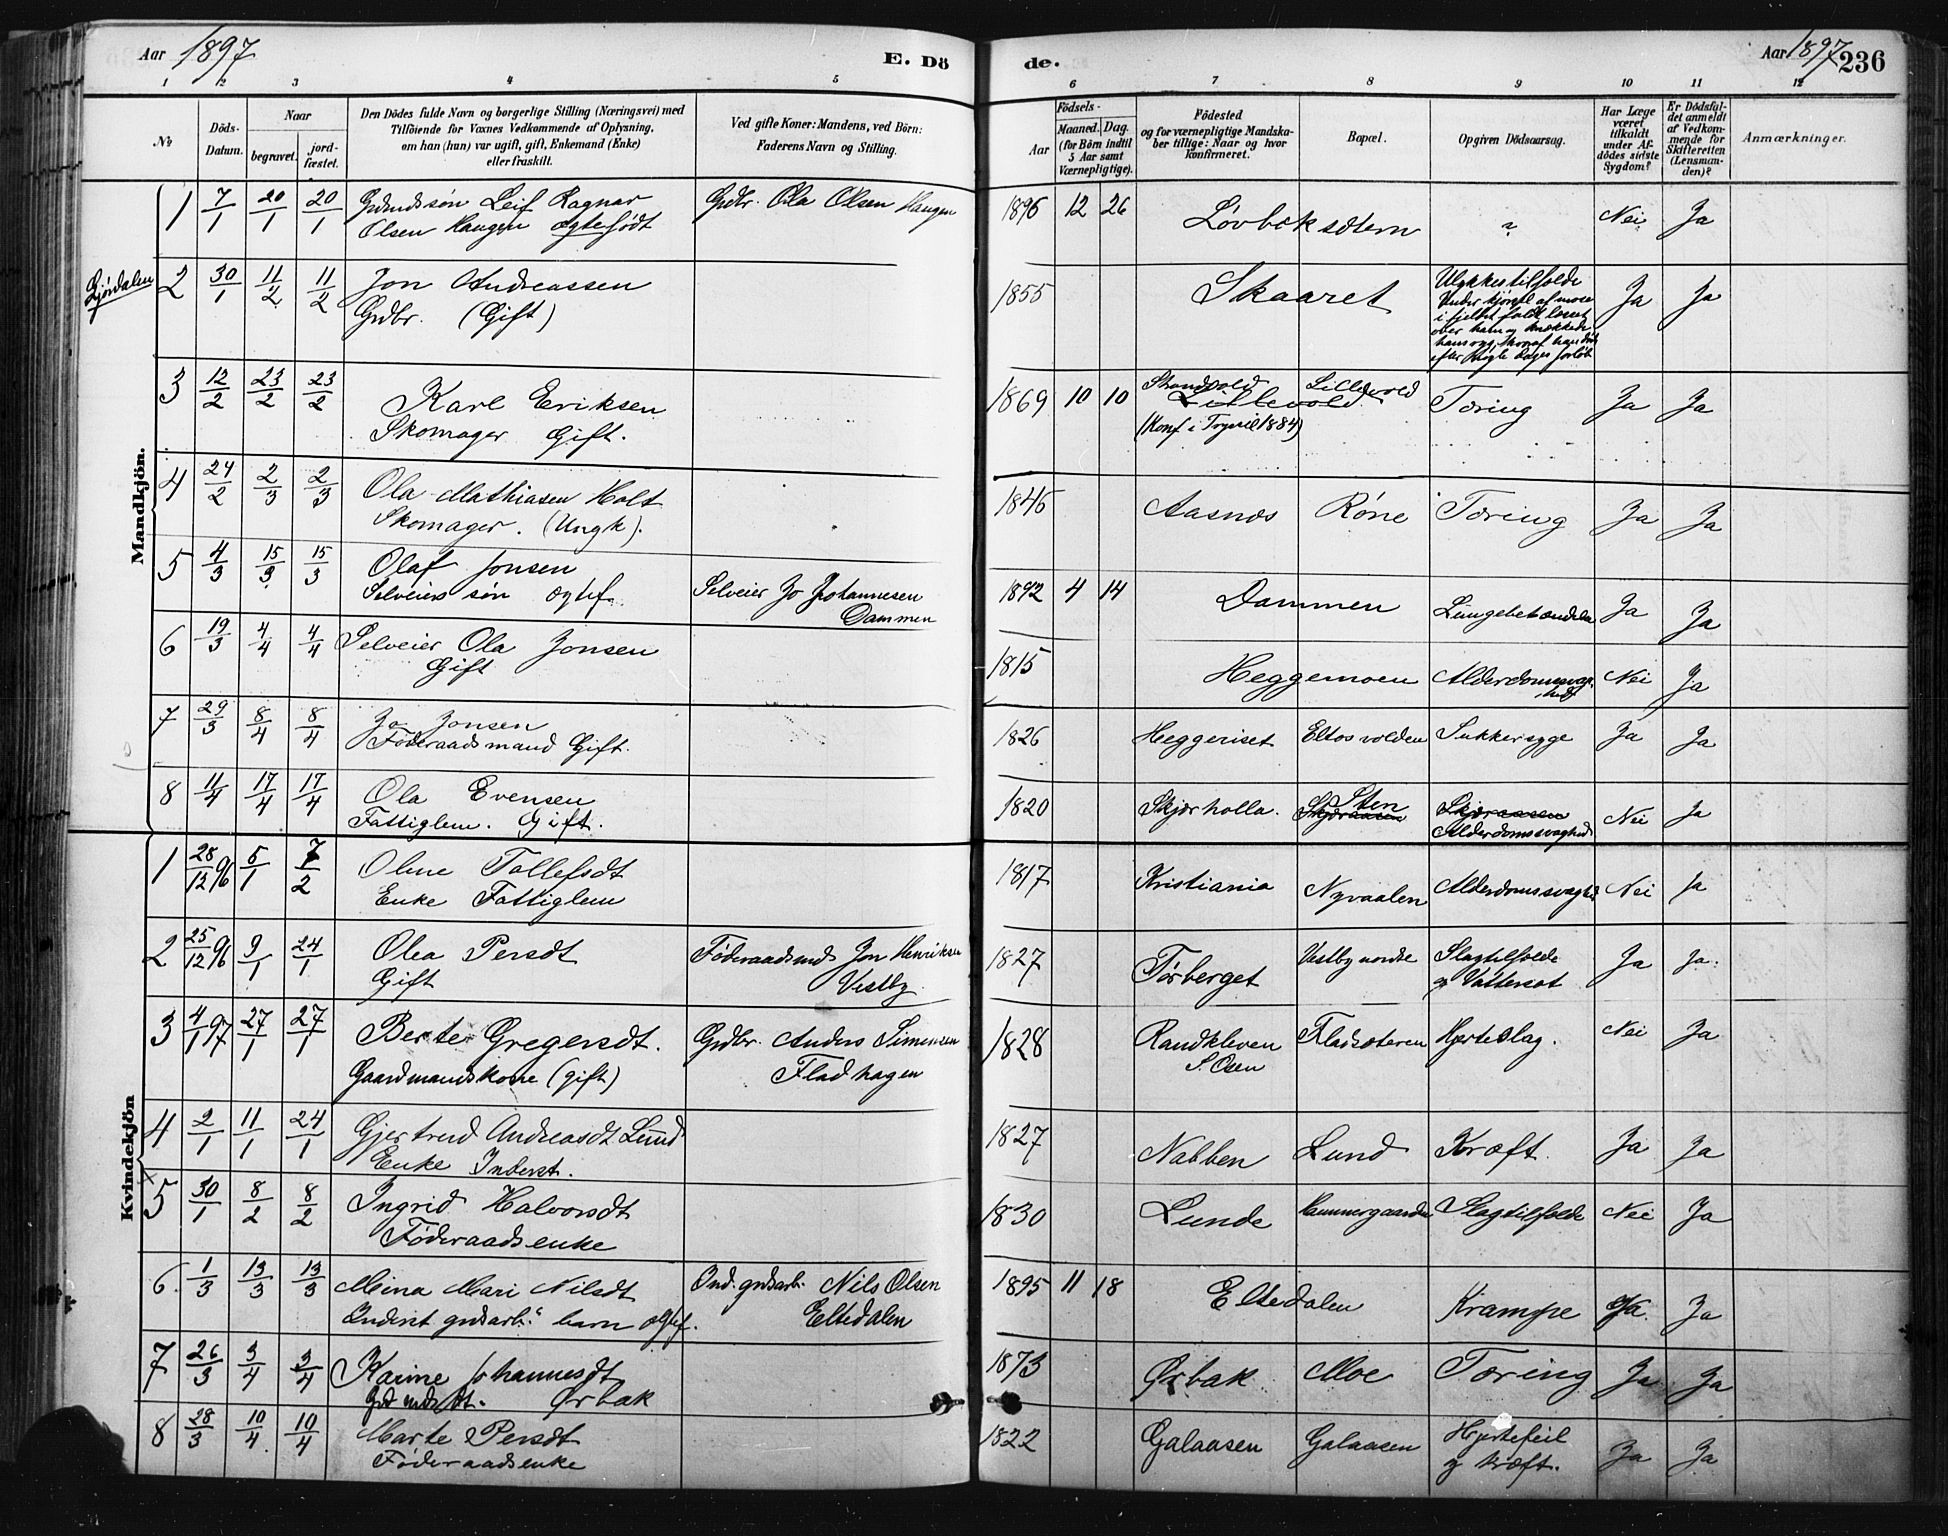 Aar 1897
E. Dö
de.
Aar 1897 236
1 2 3 4 5 6 7 8 9 10 11 12
No
Döds-Datum.
Naar
begravet.
jord-fæstet.
Den Dödes fulde Navn og borgerlige Stilling (Næringsvei) med
Tilföiende for Voxnes Vedkommende af Oplysning,
om han (hun) var ugift, gift, Enkemand (Enke)
eller fraskilt.
Ved gifte Koner: Mandens, ved Börn:
Faderens Navn og Stilling.
Födsels-
Aar
Maaned. Dag.
(for Börn indtil
5 Aar samt
Værnepligtige).
Födested
og for værnepligtige Mandska-
ber tillige: Naar og hvor
konfirmeret.
Bopæl.
Opgiven Dödsaarsag.
Har Læge
været
tilkaldt
under Af-
dödes sidste
Sygdom?
Er Dödsfal-
det anmeldt
af Vedkom-
mende for
Skifteretten
(Lensman-
den)?
Anmærkninger.
Mandkjön.
1 7/1 20/1 20/1 Grdmdssön Leif Ragnar Grdbr. Ola Olsen Haugen 1896 12 26 Løvbæksætern " Nei Ja
Olsen Haugen ægtefödt
2 30/1 11/2 11/2 Jon Andreassen 1855 Skaaret Ulykkestilfælde Ja Ja
Grdbr. (Gift)
Under kjørsel af mose
i fjeldet faldt læsset
over ham og knækkede
3 12/2 23/2 23/2 Karl Eriksen 1869 10 10 Strandvold Lillevold Tæring Ja Ja
Skomager Gift.
(Konf i Trysil 1884)
4 24/2 2/3 2/3 Ola Mathiasen Holt 1846 Aasnæs Røne Tæring Ja Ja
Skomager. (Ungk).
5 4/3 15/3 15/3 Olaf Jonsen Selveier Jo Johannesen 1892 4 14 Dammen Lungebetændelse Ja Ja
Selveiers sön ægtef. Dammen
6 19/3 4/4 4/4 Selveier Ola Jonsen 1815 Heggemoen Alderdomssvaghed Nei Ja
Gift
7 29/3 8/4 8/4 Jo Jonsen 1826 Heggeriset Eltosvolden Sukkersyge Ja Ja
Føderaadsmand Gift.
8 11/4 17/4 17/4 Ola Evensen 1820 Skjærholla. Sten Alderdomssvaghed Nei Ja
Fattiglem. Gift.
Kvindekjön
1 28/12 96 5/1 7/2 Oline Tollefsdt 1817 Kristiania Nyvaalen Alderdomssvaghed Nei Ja
Enke Fattiglem
2 25/12 96 9/1 24/1 Olea Persdt Føderaadsmd Jon Henriksen 1827 Tørberget Vestby nordre Slagtilfælde Ja Ja
Gift Vestby og Vattersot
3 4/1 97 27/1 27/1 Berte Gregersdt. Grdbr. Anders Simensen 1828 Randkleven Fladsæteren Hjerteslag. Nei Ja
Gaardmandskone (gift) Fladhagen S. Osen
4 2/1 11/1 24/1 Gjertrud Andreasdt Lund 1827 Nabben Lund Kræft. Ja Ja
Enke Inderst.
5 30/1 8/2 8/2 Ingrid Halvorsdt 1830 Lunde Hammergaarden Slagtilfælde Nei Ja
Føderaadsenke
6 1/3 13/3 13/3 Mina Mari Nilsdt Ind. grdsarb. Nils Olsen 1895 11 18 Eltedalen Krampe Ja Ja
Inderst grdsarb.s barn ægtef. Eltedalen
7 26/3 3/4 3/4 Karine Johannesdt 1873 Ørbæk Moe Tæring Ja Ja
Grdmdsdt. Ørbæk
8 28/3 10/4 10/4 Marte Persdt 1822 Galaasen Galaasen Hjertefeil Ja Ja
Føderaadsenke og kræft.